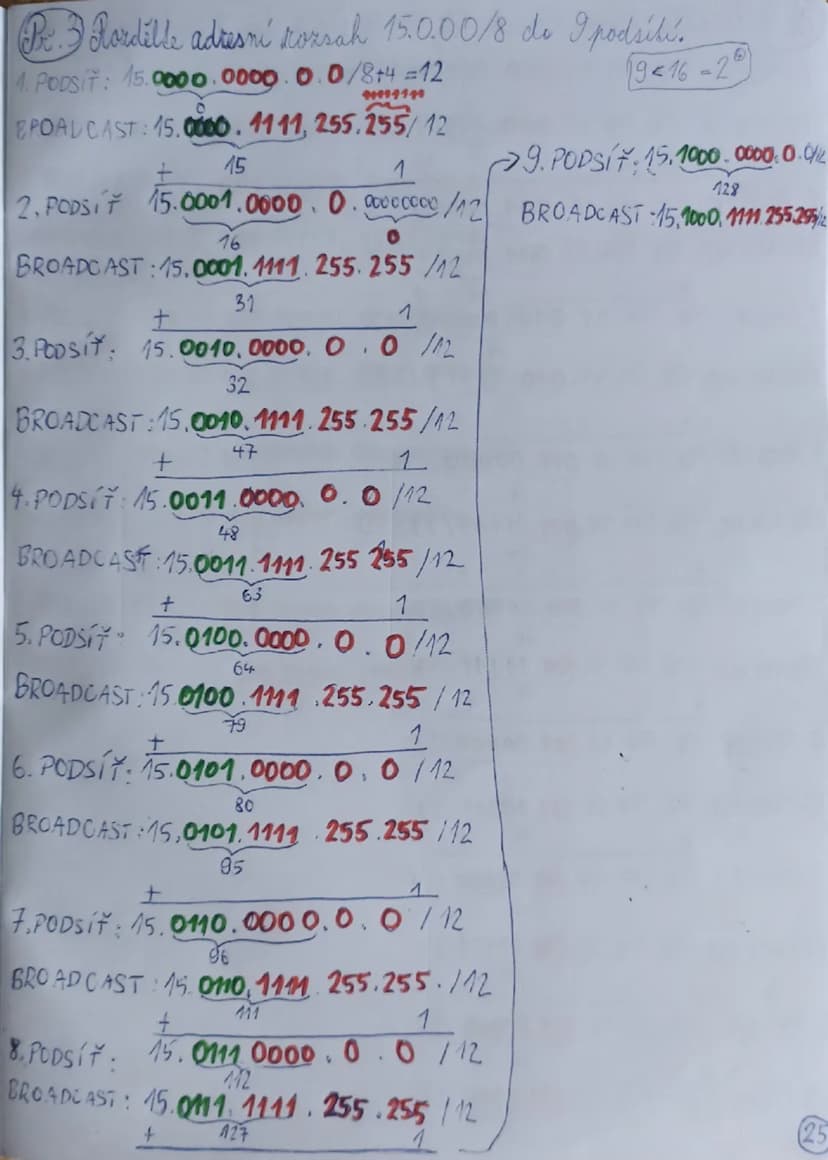 Př. 3 Rozdělte adresní rozsah 15.0.0.0/8 do 9 podsítí.
9<16 = 2④
1. PODSÍŤ: 15.0000.0000.0.0/8+4=12
0
11111111
BROADCAST: 15.0000.1111.255.255/12
15
+ 1
2. PODSÍŤ 15.0001.0000.0.00000000/12
16 0
BROADCAST: 15.0001.1111.255.255/12
31
+ 1
3. PODSÍŤ: 15.0010.0000.0.0/12
32
BROADCAST: 15.0010.1111.255.255/12
47
+ 1
4. PODSÍŤ: 15.0011.0000.0.0/12
48
BROADCAST: 15.0011.1111.255 255/12
63
+ 1
5. PODSÍŤ: 15.0100.0000.0.0/12
64
BROADCAST: 15.0100.1111.255.255/12
79
+ 1
6. PODSÍŤ: 15.0101.0000.0.0/12
80
BROADCAST: 15.0101.1111.255.255/12
95
+ 1
7. PODSÍŤ: 15.0110.0000.0.0/12
96
BROADCAST: 15.0110.1111 255.255./12
111
+ 1
8. PODSÍŤ: 15.0111 0000.0.0/12
112
BROADCAST: 15.0111.1111.255.255/12
127
+ 1
→9. PODSÍŤ: 15.1000.0000.0.0/12
128
BROADCAST: 15.1000.1111.255.255/12
25